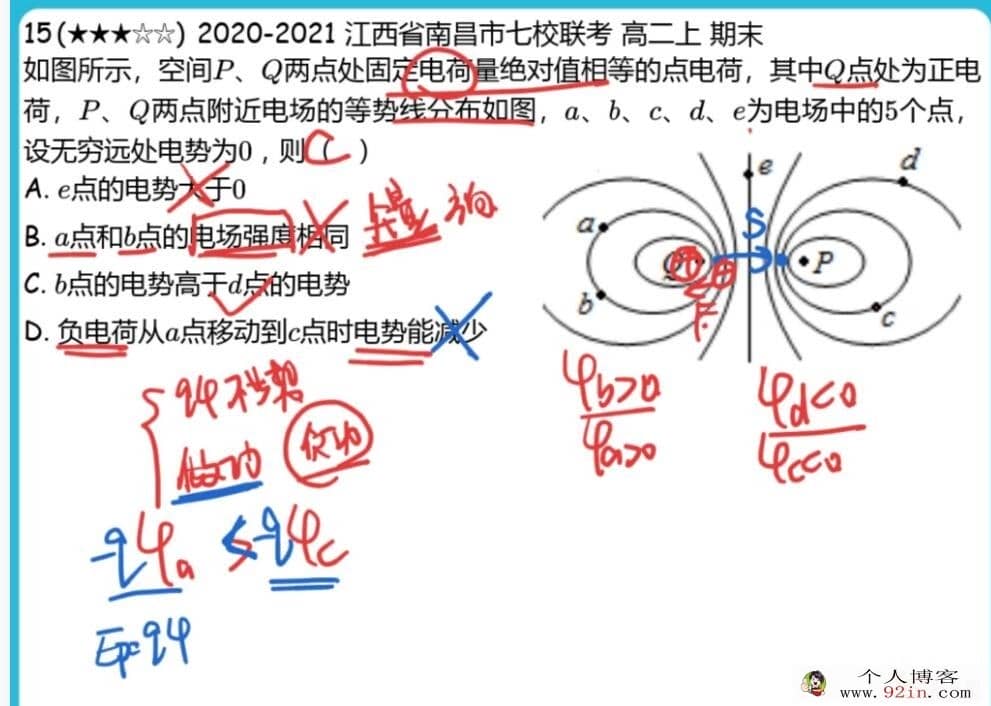 15(★★★☆☆) 2020-2021 江西省南昌市七校联考 高二上 期末
如图所示，空间P、Q两点处固定电荷量绝对值相等的点电荷，其中Q点处为正电
荷，P、Q两点附近电场的等势线分布如图，a、b、c、d、e为电场中的5个点，
设无穷远处电势为0，则（C）
A. e点的电势大于0
B. a点和b点的电场强度相同 矢量 方向
C. b点的电势高于d点的电势
D. 负电荷从a点移动到c点时电势能减少
e
d
a
S
P
b
c
F
φb>0
φd<0
φa>0
φc<0
做功
-qφa < -qφc
Ep=qφ
个人博客
www.92in.com